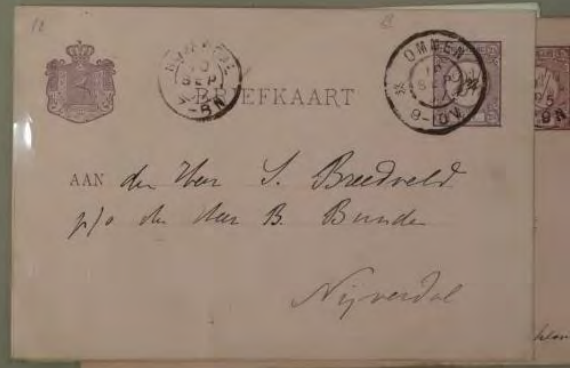 BRIEFKAART
OMMEN
SEP
8-10V
SEP
AAN den Heer S. Breedveld
p/o den Heer B. Bunde
Nijverdal